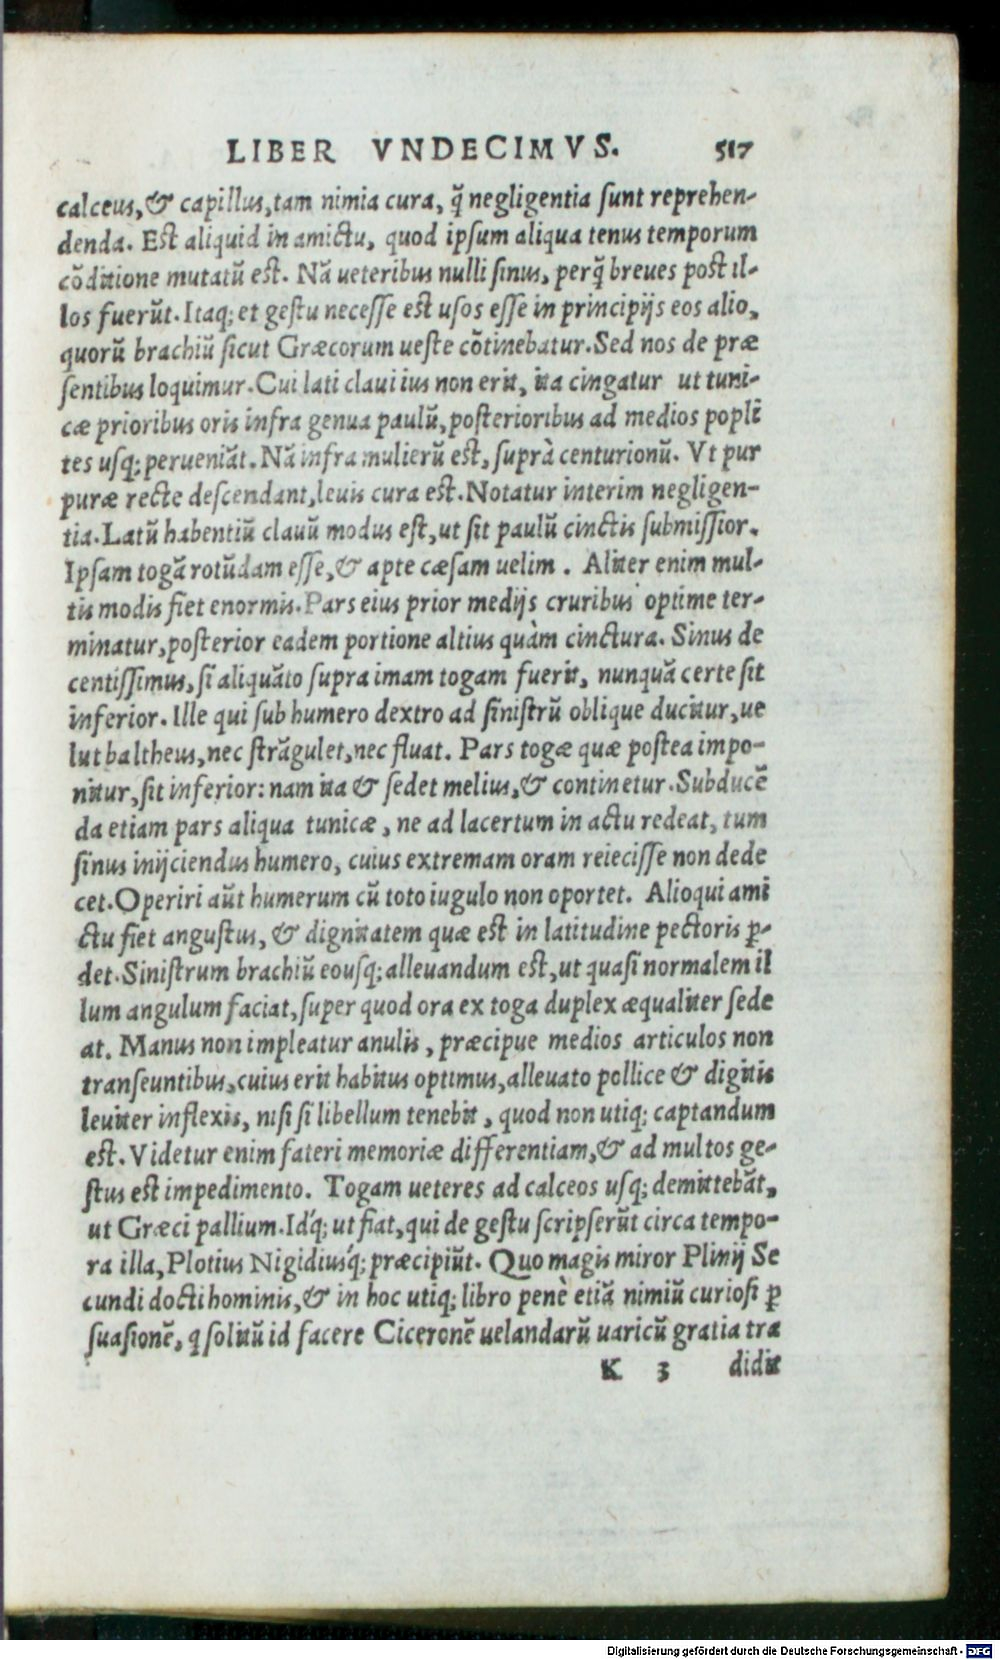 LIBER VNDECIMVS. 517
calceus, & capillus, tam nimia cura, q̃ negligentia sunt reprehen-
denda. Est aliquid in amictu, quod ipsum aliqua tenus temporum
cõditione mutatũ est. Nã ueteribus nulli sinus, perq̃ breues post il-
los fuerũt. Itaq; et gestu necesse est usos esse in principijs eos alio,
quorũ brachiũ sicut Græcorum ueste cõtinebatur. Sed nos de præ
sentibus loquimur. Cui lati claui ius non erit, ita cingatur ut tuni-
cæ prioribus oris infra genua paulũ, posterioribus ad medios popli
tes usq; perueniãt. Nã infra mulierũ est, suprà centurionũ. Vt pur
puræ recte descendant, leuis cura est. Notatur interim negligen-
tia. Latũ habentiũ clauũ modus est, ut sit paulũ cinctis submissior.
Ipsam togã rotũdam esse, & apte cæsam uelim. Aliter enim mul-
tis modis fiet enormis. Pars eius prior medijs cruribus optime ter-
minatur, posterior eadem portione altius quàm cinctura. Sinus de
centissimus, si aliquãto supra imam togam fuerit, nunquã certe sit
inferior. Ille qui sub humero dextro ad sinistrũ oblique ducitur, ue
lut baltheus, nec strãgulet, nec fluat. Pars togæ quæ postea impo-
nitur, sit inferior: nam ita & sedet melius, & continetur. Subducẽ
da etiam pars aliqua tunicæ, ne ad lacertum in actu redeat, tum
sinus inijciendus humero, cuius extremam oram reiecisse non dede
cet. Operiri aũt humerum cũ toto iugulo non oportet. Alioqui ami
ctu fiet angustus, & dignitatem quæ est in latitudine pectoris ꝑ-
det. Sinistrum brachiũ eousq; alleuandum est, ut quasi normalem il
lum angulum faciat, super quod ora ex toga duplex æqualiter sede
at. Manus non impleatur anulis, præcipue medios articulos non
transeuntibus, cuius erit habitus optimus, alleuato pollice & digitis
leuiter inflexis, nisi si libellum tenebit, quod non utiq; captandum
est. Videtur enim fateri memoriæ differentiam, & ad multos ge-
stus est impedimento. Togam ueteres ad calceos usq; demittebãt,
ut Græci pallium. Id'q; ut fiat, qui de gestu scripserũt circa tempo-
ra illa, Plotius Nigidius'q; præcipiũt. Quo magis miror Plinij Se
cundi docti hominis, & in hoc utiq; libro penè etiã nimiũ curiosi ꝑ
suasionẽ, q solitũ id facere Ciceronẽ uelandarũ uaricũ gratia tra
K 3 didit
Digitalisierung gefördert durch die Deutsche Forschungsgemeinschaft - DFG